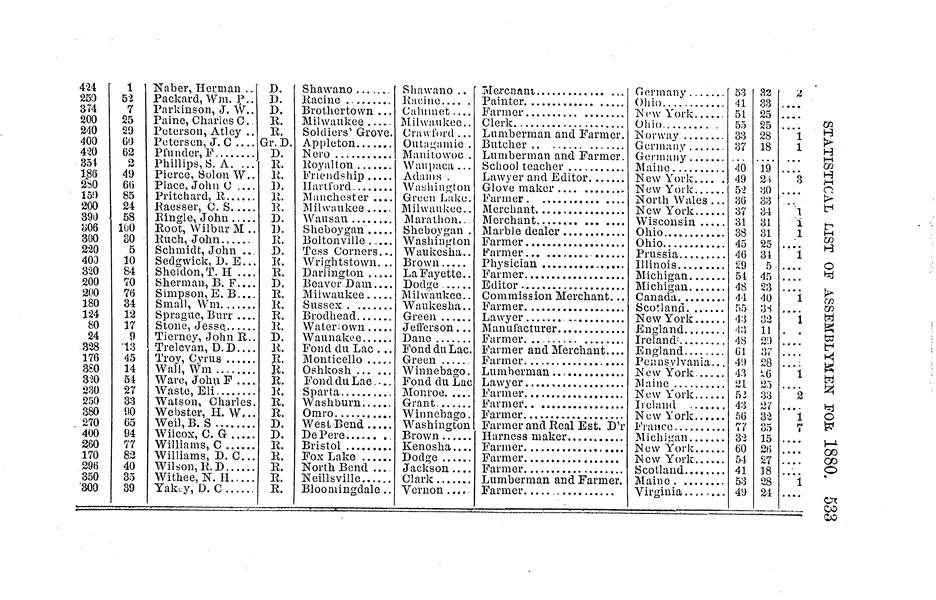 424 1 Naber, Herman .. D. Shawano ...... Shawano .. Merchant................ Germany ...... 53 32 2
259 52 Packard, Wm. P.. D. Racine ........ Racine.... . Painter................. Ohio.......... 41 33 ....
374 7 Parkinson, J. W.. D. Brothertown . Calumet.... Farmer.................. New York..... 51 25 ....
200 25 Paine, Charles C.. R. Milwaukee .... Milwaukee.. Clerk................... Ohio.......... 55 25 ....
240 29 Peterson, Atley .. R. Soldiers' Grove. Crawford .. Lumberman and Farmer. Norway ....... 33 28 1
400 60 Petersen, J. C .... Gr. D. Appleton...... Outagamie . Butcher ................ Germany ...... 37 18 1
420 62 Pfunder, F ....... D. Nero ......... Manitowoc . Lumberman and Farmer. Germany ...... ... .... ....
354 2 Phillips, S. A. ... R. Royalton ..... Waupaca ... School teacher .......... Maine......... 40 19 ....
186 49 Pierce, Solon W.. R. Friendship .... Adams . Lawyer and Editor....... New York ..... 49 24 3
280 66 Place, John C .... D. Hartford....... Washington Glove maker ........... New York ..... 52 30 ....
159 85 Pritchard, R...... R. Manchester .... Green Lake. Farmer................. North Wales .. 36 33 ....
200 24 Raesser, C. S. .... R. Milwaukee..... Milwaukee.. Merchant............... New York..... 37 34 1
390 58 Ringle, John ..... D. Wausau ....... Marathon.. Merchant............... Wisconsin .... 31 31 1
306 100 Root, Wilbur M .. D. Sheboygan .... Sheboygan . Marble dealer ......... Ohio.......... 38 31 1
300 30 Ruch, John...... R. Boltonville ..... Washington Farmer................. Ohio.......... 45 25 ....
220 5 Schmidt, John .. D. Tess Corners... Waukesha.. Farmer................. Prussia....... 46 34 1
400 10 Sedgwick, D. E... R. Wrightstown... Brown ..... Physician .............. Illinois....... 29 5 ....
320 84 Sheldon, T. H .... R. Darlington .... La Fayette.. Farmer................. Michigan...... 54 45 ....
200 70 Sherman, B. F.... D. Beaver Dam... Dodge ..... Editor ................. Michigan...... 48 23 ....
200 76 Simpson, E. B.... R. Milwaukee..... Milwaukee.. Commission Merchant... Canada........ 44 40 1
180 34 Small, Wm. ..... R. Sussex ........ Waukesha.. Farmer................. Scotland...... 55 38 ....
124 12 Sprague, Burr .... R. Brodhead...... Green ..... Lawyer ................ New York..... 43 32 1
80 17 Stone, Jesse...... R. Watertown .... Jefferson... Manufacturer........... England....... 43 11 ....
24 9 Tierney, John R.. D. Waunakee..... Dane ...... Farmer................. Ireland....... 48 29 ....
328 13 Trelevan, D. D.... R. Fond du Lac ... Fond du Lac. Farmer and Merchant.... England....... 61 37 ....
176 45 Troy, Cyrus ..... R. Monticello .... Green ..... Farmer................. Pennsylvania.. 49 26 ....
380 14 Wall, Wm ....... R. Oshkosh ...... Winnebago. Lumberman ............ New York..... 43 26 1
320 54 Ware, John F .... R. Fond du Lac... Fond du Lac Lawyer................. Maine ........ 21 25 ....
230 27 Waste, Eli....... R. Sparta........ Monroe. ... Farmer................. New York..... 52 33 2
250 33 Watson, Charles. R. Washburn..... Grant ...... Farmer................. Ireland ...... 43 27 ....
380 90 Webster, H. W... R. Omro.......... Winnebago. Farmer................. New York..... 56 32 1
270 65 Weil, B. S ....... D. West Bend .... Washington Farmer and Real Est. D'r France........ 77 35 7
400 94 Wilcox, C. G .... D. De Pere....... Brown ..... Harness maker.......... Michigan...... 32 15 ....
260 77 Williams, C ..... R. Bristol ....... Kenosha.... Farmer................. New York..... 60 26 ....
170 82 Williams, D. C... R. Fox Lake ..... Dodge ..... Farmer................. New York..... 54 27 ....
296 40 Wilson, R. D..... R. North Bend .... Jackson ... Farmer................. Scotland...... 41 18 ....
350 35 Withee, N. H.... R. Neillsville..... Clark ...... Lumberman and Farmer. Maine ........ 53 28 1
300 39 Yakey, D. C ..... R. Bloomingdale .. Vernon .... Farmer................. Virginia...... 49 24 ....
STATISTICAL LIST OF ASSEMBLYMEN FOR 1880. 533